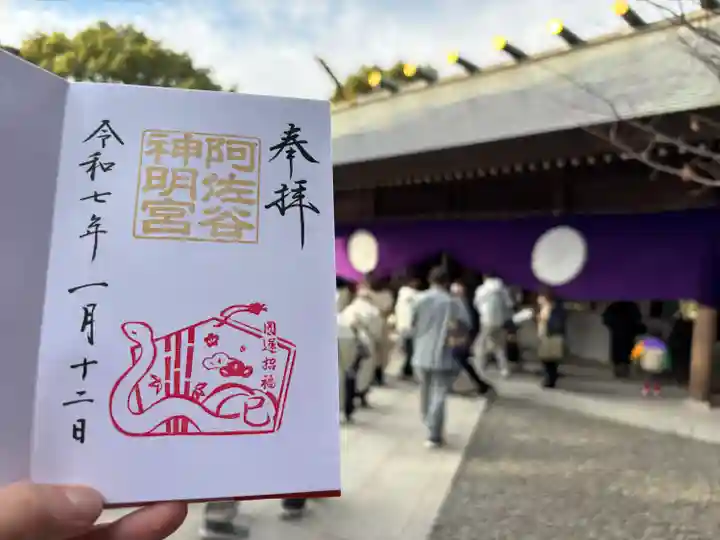 奉拝
阿佐谷
神明宮
開運招福
巳
令和七年一月十二日